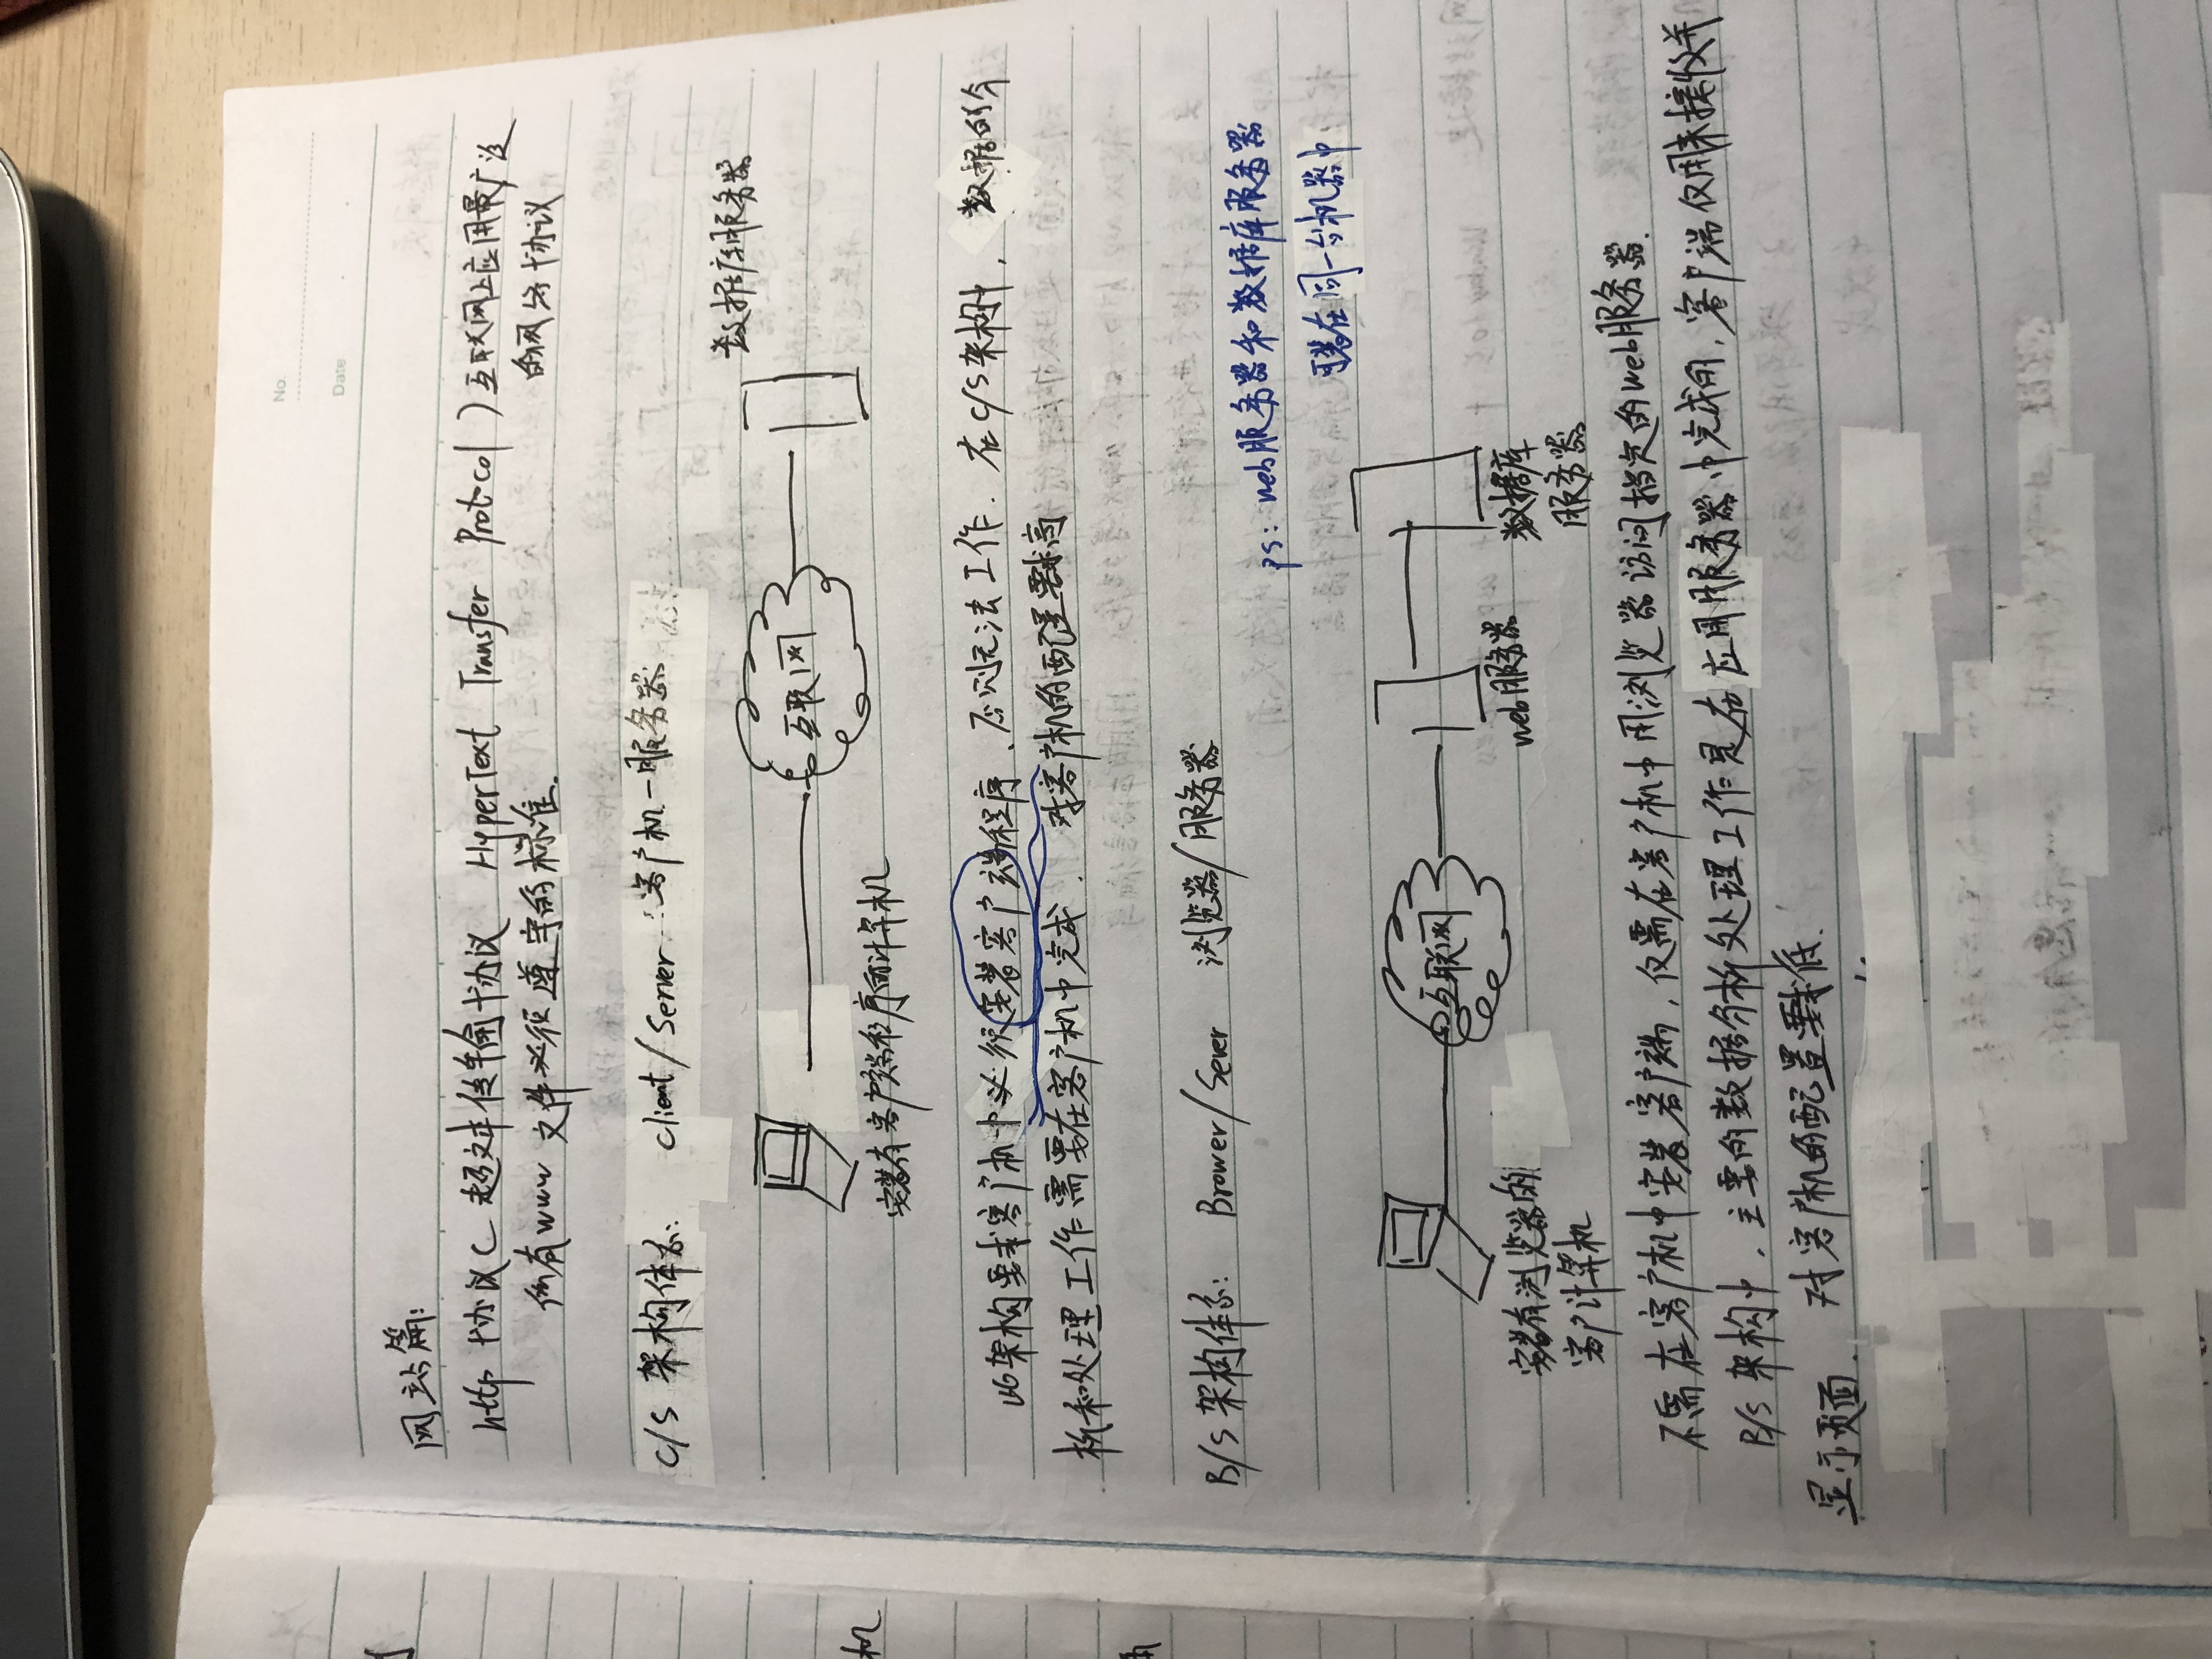 No.
Date
网站篇:
http 协议 ( 超文本传输协议 HyperText Transfer Protocol ) 互联网上应用最广泛
的网络协议
所有www 文件必须遵守的标准.
C/S 架构体系: client/Server 客户机-服务器
数据库服务器
互联网
安装有客户端程序的计算机
此架构要求客户机中必须安装客户端程序, 否则无法工作. 在C/S架构中, 数据的分
析和处理工作需要在客户机中完成. 对客户机的配置要求高
B/S 架构体系: Brower/Sever 浏览器/服务器
ps: web服务器和数据库服务器
可装在同一台机器中
互联网
web服务器
数据库
服务器
安装有浏览器的
客户计算机
不需在客户机中安装客户端, 仅需在客户机中用浏览器访问指定的web服务器.
B/S 架构中, 主要的数据分析处理工作是在应用服务器中完成的, 客户端仅用来接收并
显示页面. 对客户机的配置要求低.
机